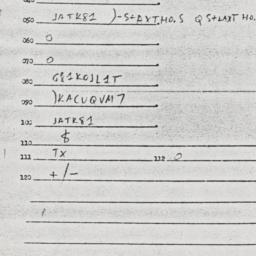 050 JATK81 )-S+AXT.HO.S Q S+LAXT HO.
060 0
070 0
080 G81KOJL1T
090 )KACUQVM7
100 JATK81
110 $
111 TX 112 0
120 +/-